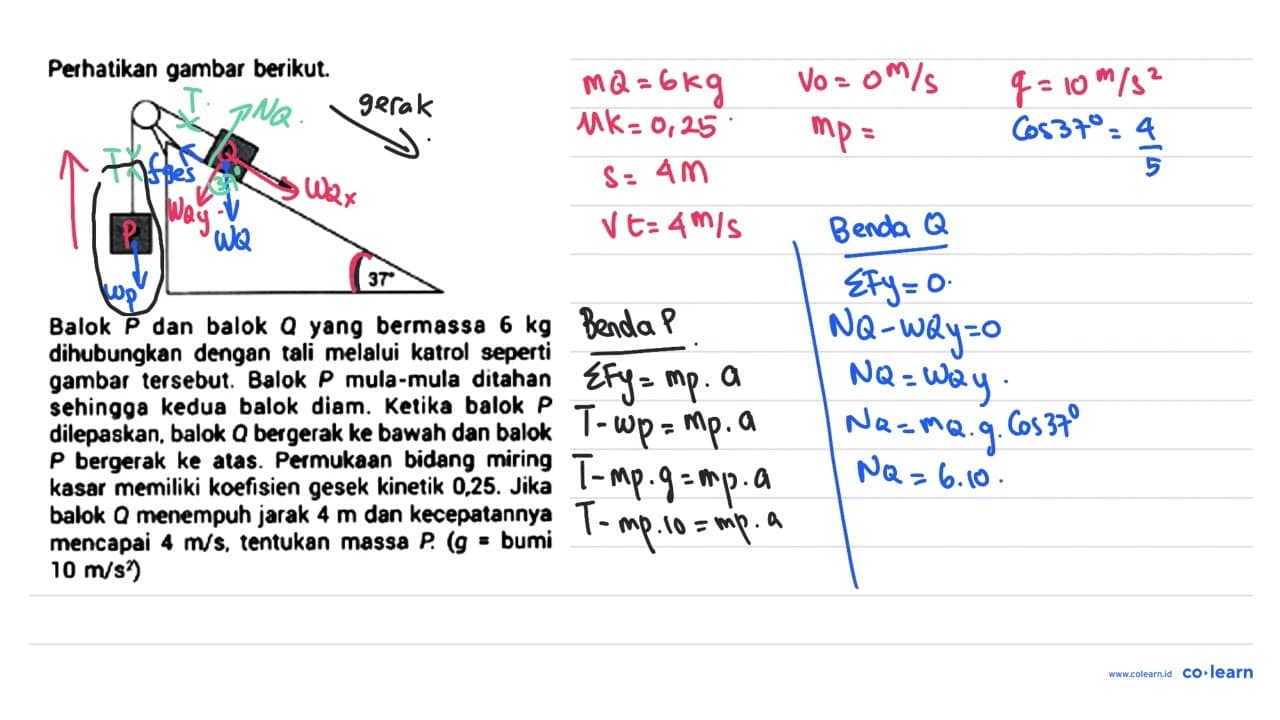 Perhatikan gambar berikut.
T.
NQ.
gerak
T
fges
Q
37°
WQx
WQy
WQ
P
wp
37°
Balok P dan balok Q yang bermassa 6 kg
dihubungkan dengan tali melalui katrol seperti
gambar tersebut. Balok P mula-mula ditahan
sehingga kedua balok diam. Ketika balok P
dilepaskan, balok Q bergerak ke bawah dan balok
P bergerak ke atas. Permukaan bidang miring
kasar memiliki koefisien gesek kinetik 0,25. Jika
balok Q menempuh jarak 4 m dan kecepatannya
mencapai 4 m/s, tentukan massa P. (g = bumi
10 m/s²)
mQ = 6kg
Vo = 0 m/s
g = 10 m/s²
Mk = 0,25
mp =
Cos 37° = 4/5
s = 4m
Vt = 4 m/s
Benda P
ΣFy = mp. a
T - wp = mp. a
T - mp. g = mp. a
T - mp. 10 = mp. a
Benda Q
ΣFy = 0.
NQ - WQy = 0
NQ = WQy.
NQ = mQ. g. Cos 37°
NQ = 6.10.
www.colearn.id
co·learn